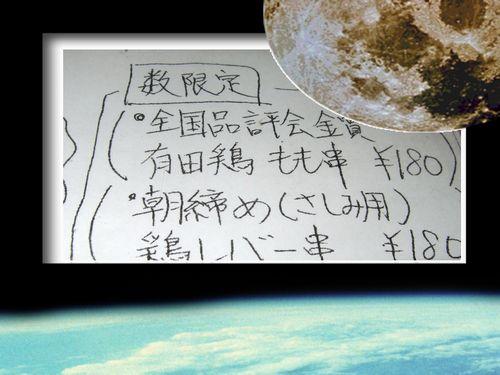 数限定
◎全国品評会金賞
有田鶏 もも串 ¥180
•朝締め(さしみ用)
鶏レバー串 ¥180